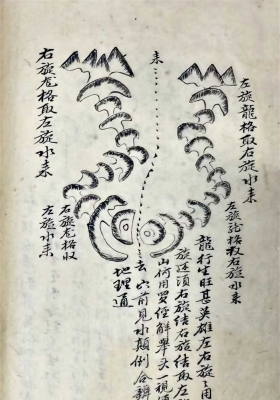 左旋龍格取右旋水来
左旋龍格收右旋水来
来
右旋龙格取左旋水来
右旋龙格收
左旋水来
龍行生旺甚英雄左右旋之用
旋还須右旋结右旋结取左
山何用罗经解舉头一視
去穴前見水顛倒合
地理通